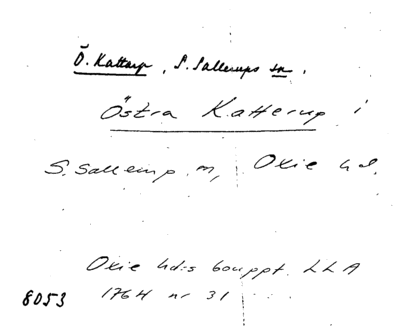 Ö. Kattarp, S. Sallerups sn.
Östra Katterup i
S. Sallerup m, Oxie hd.
Oxie hd:s bouppt. LLA
8053 1764 nr 31